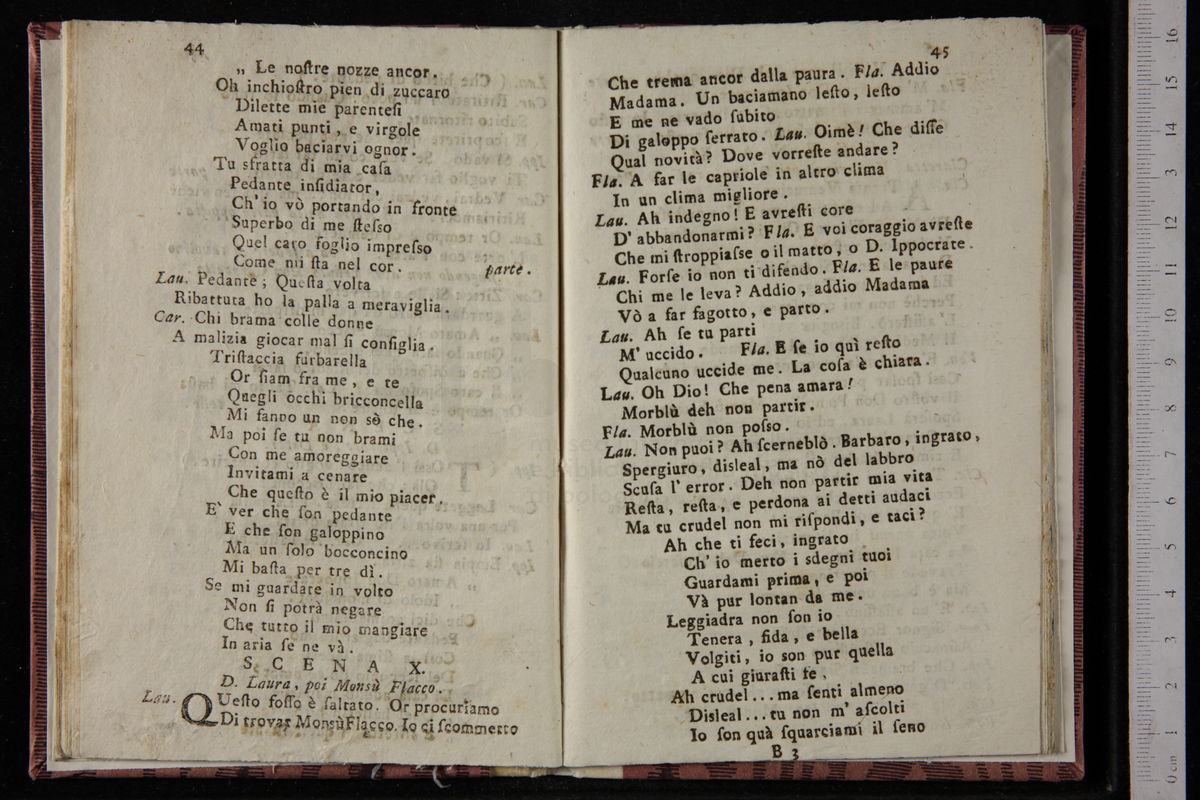 44
„ Le noſtre nozze ancor.
Oh inchioſtro pien di zuccaro
Dilette mie parenteſi
Amati punti, e virgole
Voglio baciarvi ognor.
Tu sfratta di mia caſa
Pedante inſidiator,
Ch' io vò portando in fronte
Superbo di me ſteſso
Quel caro foglio impreſso
Come mi ſta nel cor. parte.
Lau. Pedante; Queſta volta
Ribattuta ho la palla a meraviglia.
Car. Chi brama colle donne
A malizia giocar mal ſi conſiglia.
Triſtaccia furbarella
Or ſiam fra me, e te
Quegli occhi bricconcella
Mi fanno un non sò che.
Ma poi ſe tu non brami
Con me amoreggiare
Invitami a cenare
Che queſto è il mio piacer.
E' ver che ſon pedante
E che ſon galoppino
Ma un ſolo bocconcino
Mi baſta per tre dì.
Se mi guardate in volto
Non ſi potrà negare
Che tutto il mio mangiare
In aria ſe ne và.
S C E N A X.
D. Laura, poi Monsù Flacco.
Lau. QUeſto foſſo è ſaltato. Or procuriamo
Di trovar Monsù Flacco. Io ci ſcommetto
45
Che trema ancor dalla paura. Fla. Addio
Madama. Un baciamano leſto, leſto
E me ne vado ſubito
Di galoppo ferrato. Lau. Oimè! Che diſſe
Qual novità? Dove vorreſte andare?
Fla. A far le capriole in altro clima
In un clima migliore.
Lau. Ah indegno! E avreſti core
D' abbandonarmi? Fla. E voi coraggio avreſte
Che mi ſtroppiaſse o il matto, o D. Ippocrate.
Lau. Forſe io non ti difendo. Fla. E le paure
Chi me le leva? Addio, addio Madama
Vò a far fagotto, e parto.
Lau. Ah ſe tu parti
M' uccido. Fla. E ſe io quì reſto
Qualcuno uccide me. La coſa è chiara.
Lau. Oh Dio! Che pena amara!
Morblù deh non partir.
Fla. Morblù non poſso.
Lau. Non puoi? Ah ſcerneblò. Barbaro, ingrato,
Spergiuro, disleal, ma nò del labbro
Scuſa l' error. Deh non partir mia vita
Reſta, reſta, e perdona ai detti audaci
Ma tu crudel non mi riſpondi, e taci?
Ah che ti feci, ingrato
Ch' io merto i sdegni tuoi
Guardami prima, e poi
Và pur lontan da me.
Leggiadra non ſon io
Tenera, fida, e bella
Volgiti, io son pur quella
A cui giuraſti fe.
Ah crudel... ma ſenti almeno
Disleal... tu non m' aſcolti
Io ſon quà ſquarciami il ſeno
B 3